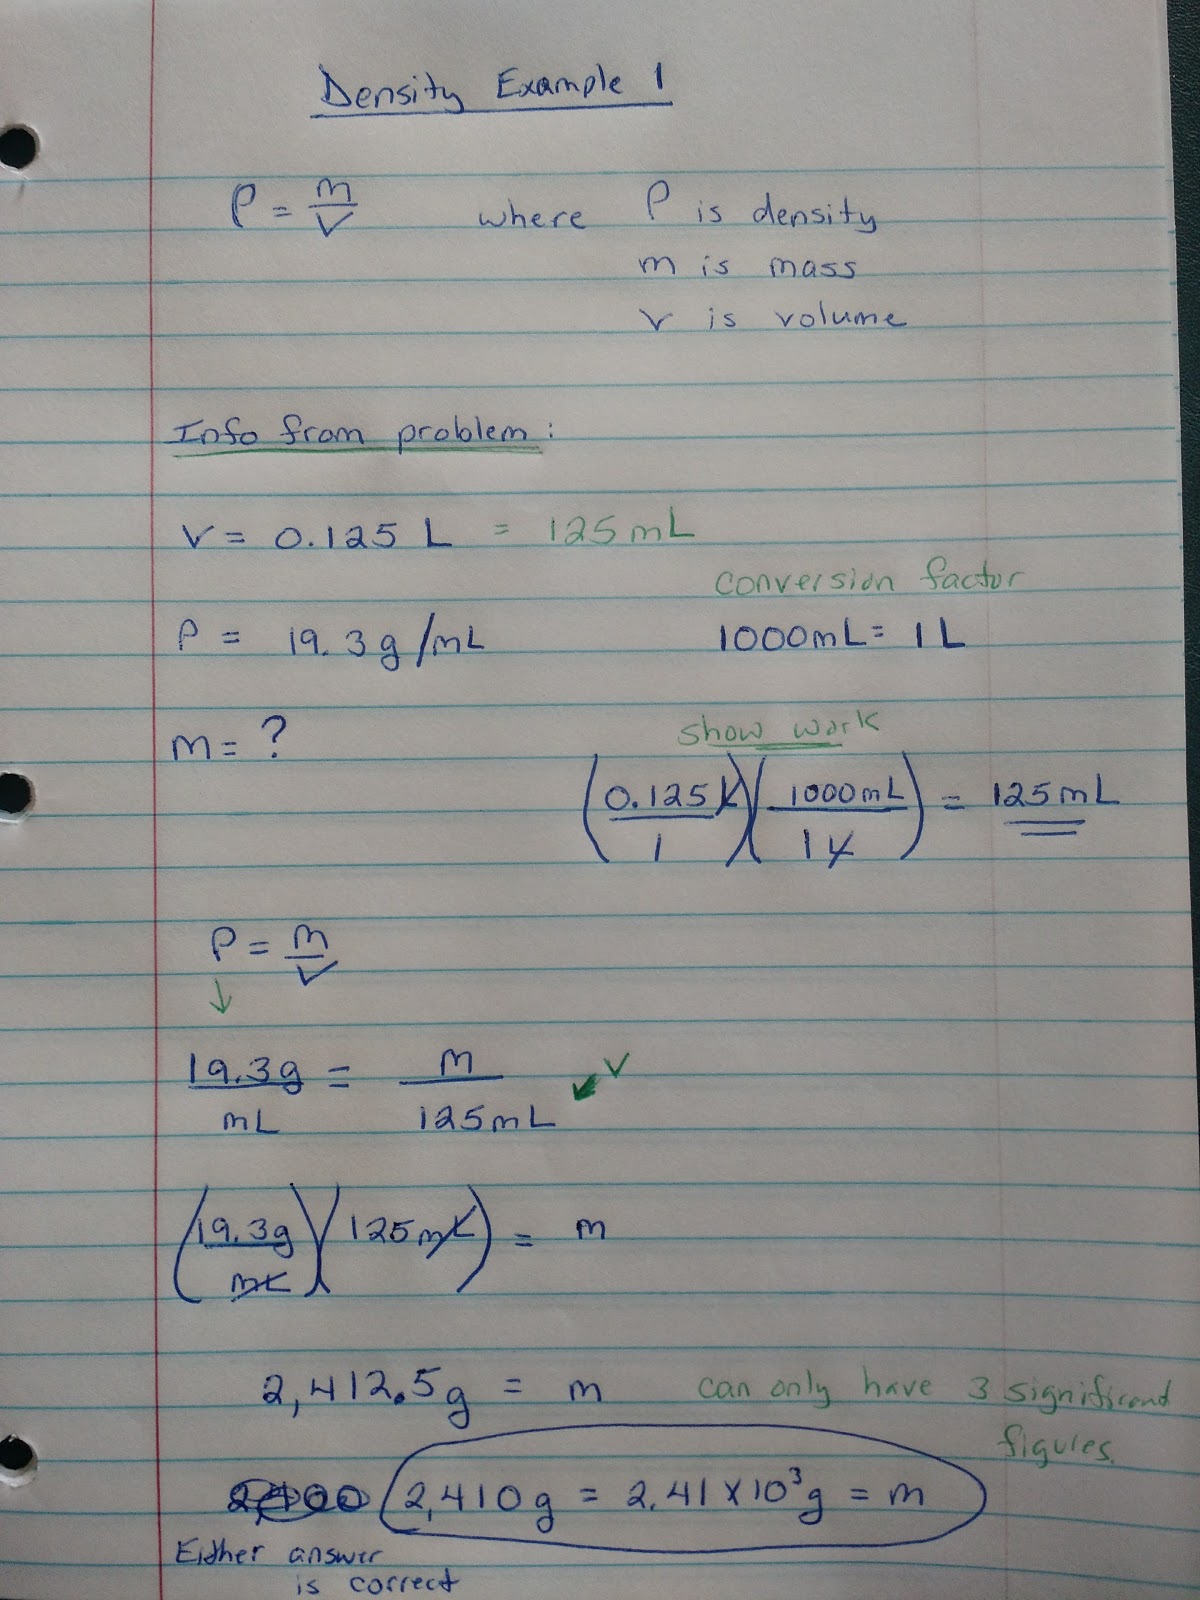 Density Example 1
ρ = m/V where ρ is density
m is mass
v is volume
Info from problem:
V = 0.125 L = 125 mL
conversion factor
ρ = 19.3 g/mL 1000mL = 1 L
m = ?
show work
(0.125 L / 1)(1000 mL / 1 L) = 125 mL
ρ = m/V
↓
19.3g/mL = m/125mL ↙ V
(19.3g/mL)(125mL) = m
2,412.5g = m can only have 3 significant
figures.
2,410g = 2.41 x 10³g = m
Either answer
is correct